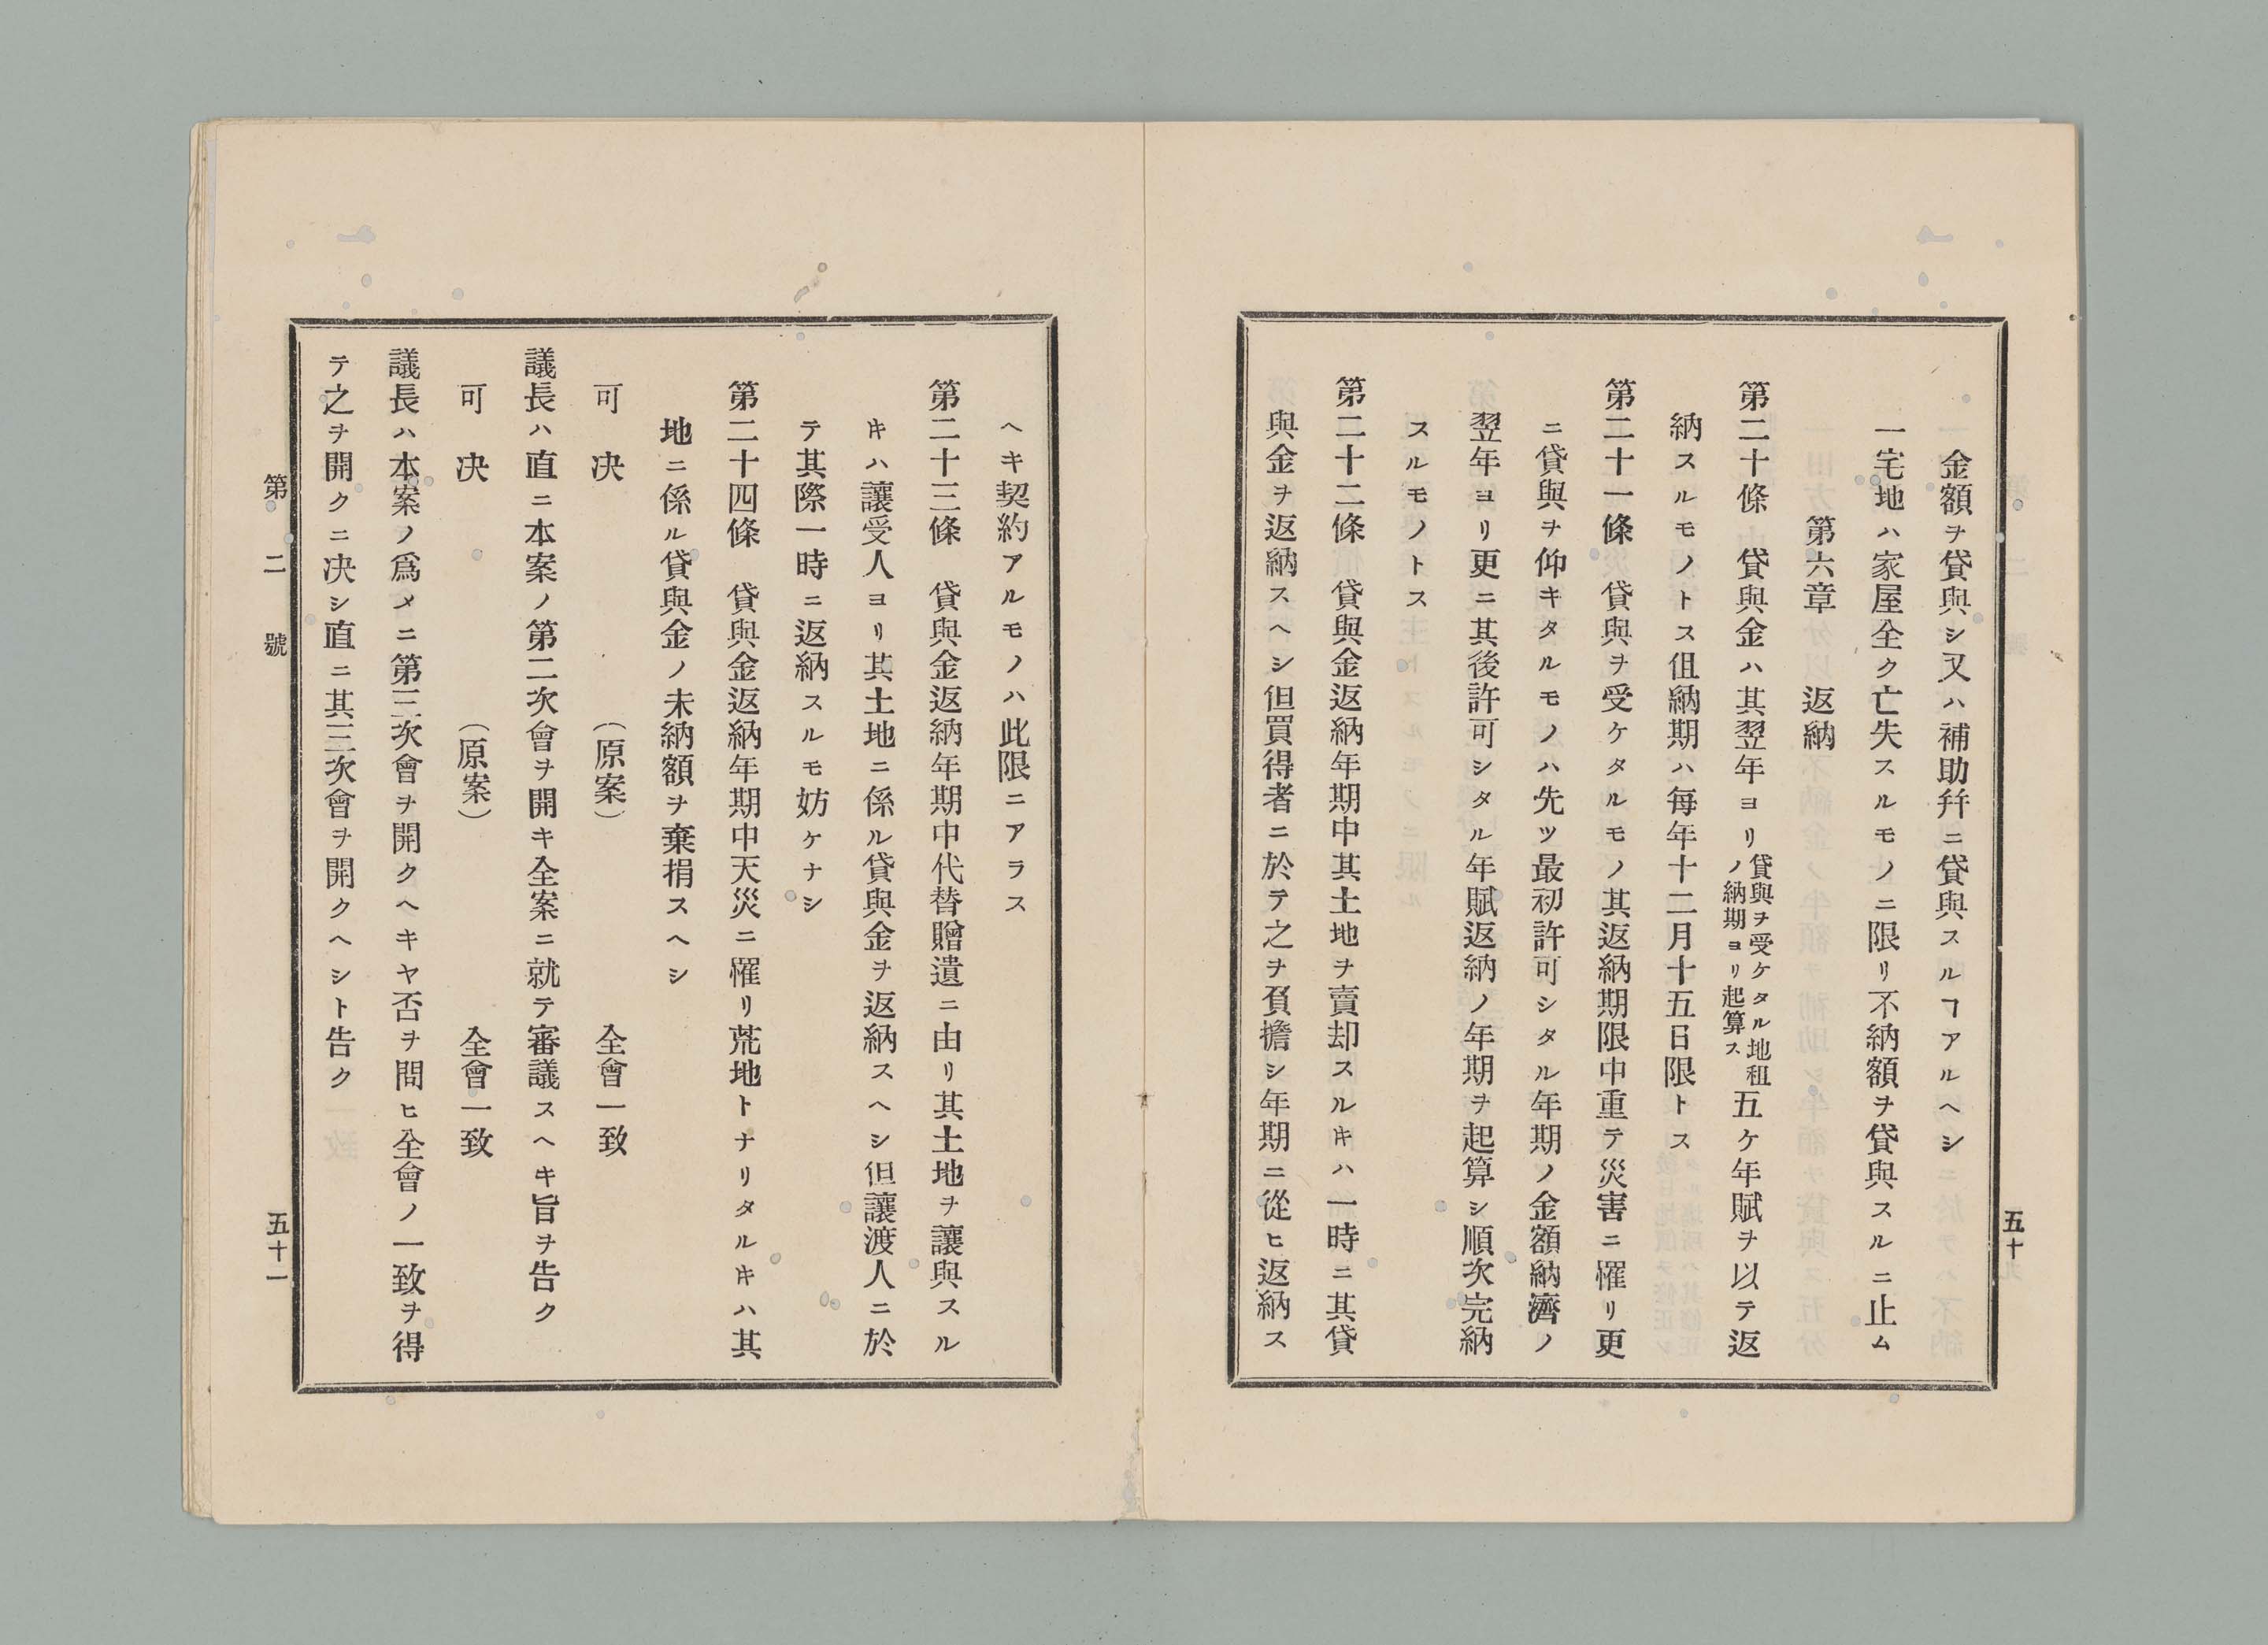 金額ヲ貸與シ又ハ補助幷ニ貸與スルヿアルヘシ
一宅地ハ家屋全ク亡失スルモノニ限リ不納額ヲ貸與スルニ止ム
第六章　返納
第二十條　貸與金ハ其翌年ヨリ貸與ヲ受ケタル地租ノ納期ヨリ起算ス五ケ年賦ヲ以テ返
納スルモノトス伹納期ハ毎年十二月十五日限トス
第二十一條　貸與ヲ受ケタルモノ其返納期限中重テ災害ニ罹リ更
ニ貸與ヲ仰キタルモノハ先ツ最初許可シタル年期ノ金額納濟ノ
翌年ヨリ更ニ其後許可シタル年賦返納ノ年期ヲ起算シ順次完納
スルモノトス
第二十二條　貸與金返納年期中其土地ヲ賣却スルキハ一時ニ其貸
與金ヲ返納スヘシ但買得者ニ於テ之ヲ負擔シ年期ニ從ヒ返納ス
五十
ヘキ契約アルモノハ此限ニアラス
第二十三條　貸與金返納年期中代替贈遺ニ由リ其土地ヲ讓與スル
キハ讓受人ヨリ其土地ニ係ル貸與金ヲ返納スヘシ但讓渡人ニ於
テ其際一時ニ返納スルモ妨ケナシ
第二十四條　貸與金返納年期中天災ニ罹リ荒地トナリタルキハ其
地ニ係ル貸與金ノ未納額ヲ棄捐スヘシ
可决　（原案）　全會一致
議長ハ直ニ本案ノ第二次會ヲ開キ全案ニ就テ審議スヘキ旨ヲ告ク
可决　（原案）　全會一致
議長ハ本案ノ爲メニ第三次會ヲ開クヘキヤ否ヲ問ヒ全會ノ一致ヲ得
テ之ヲ開クニ决シ直ニ其三次會ヲ開クヘシト告ク
第二號　五十一